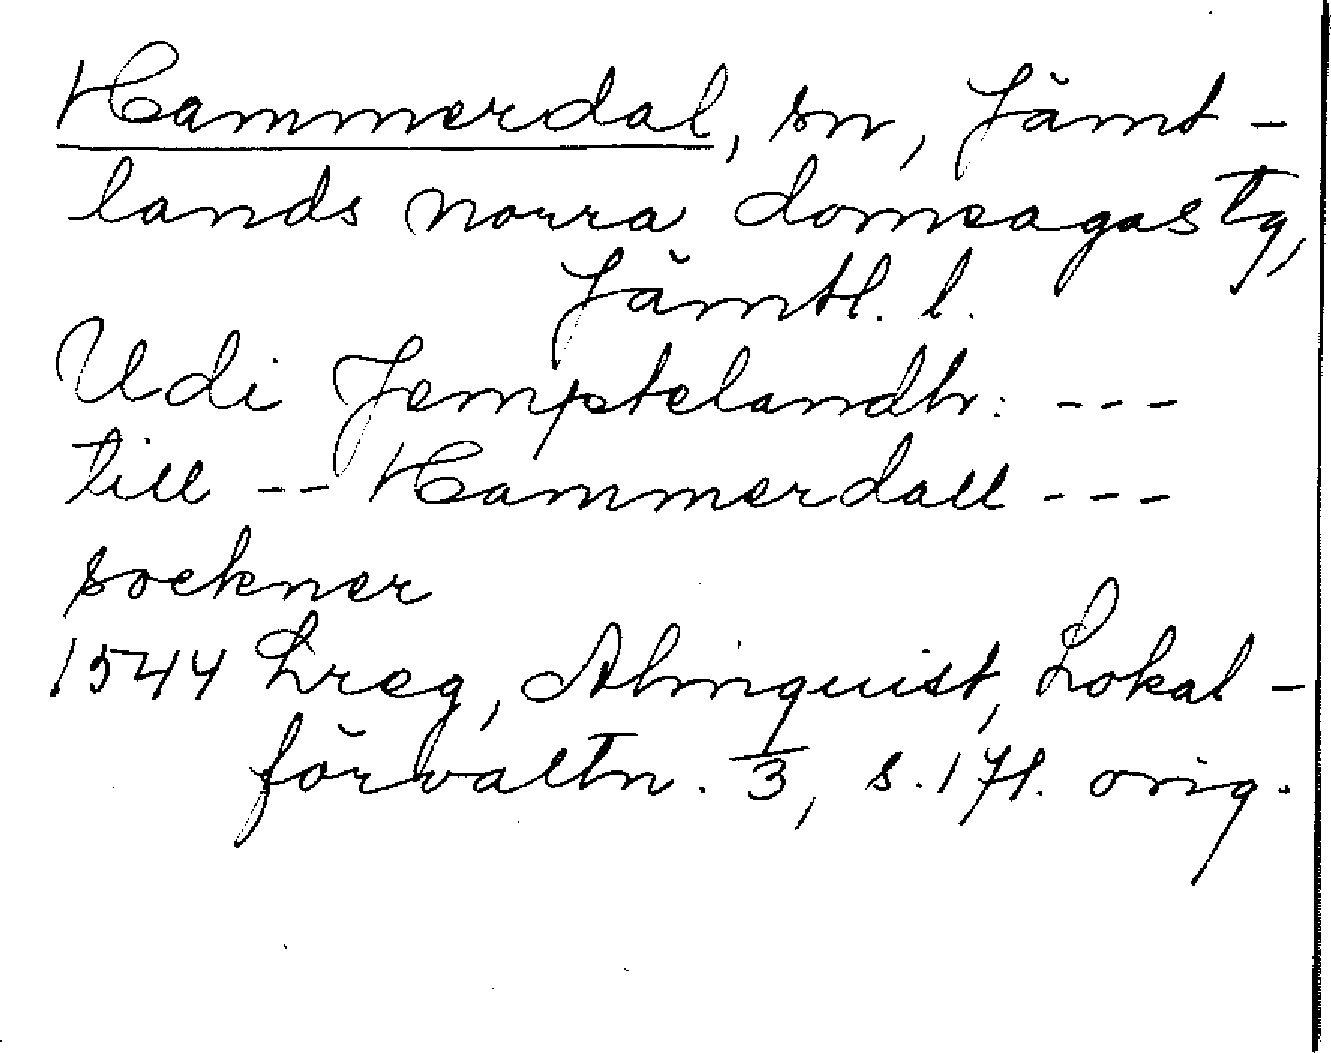 Hammerdal, sn, Jämt-
lands norra domsagas tg,
Jämtl. l.
Udi Jemptelandh: ---
till -- Hammerdall ---
sockner
1544 Lreg, Almquist, Lokal-
förvaltn. 3, s. 171. orig.